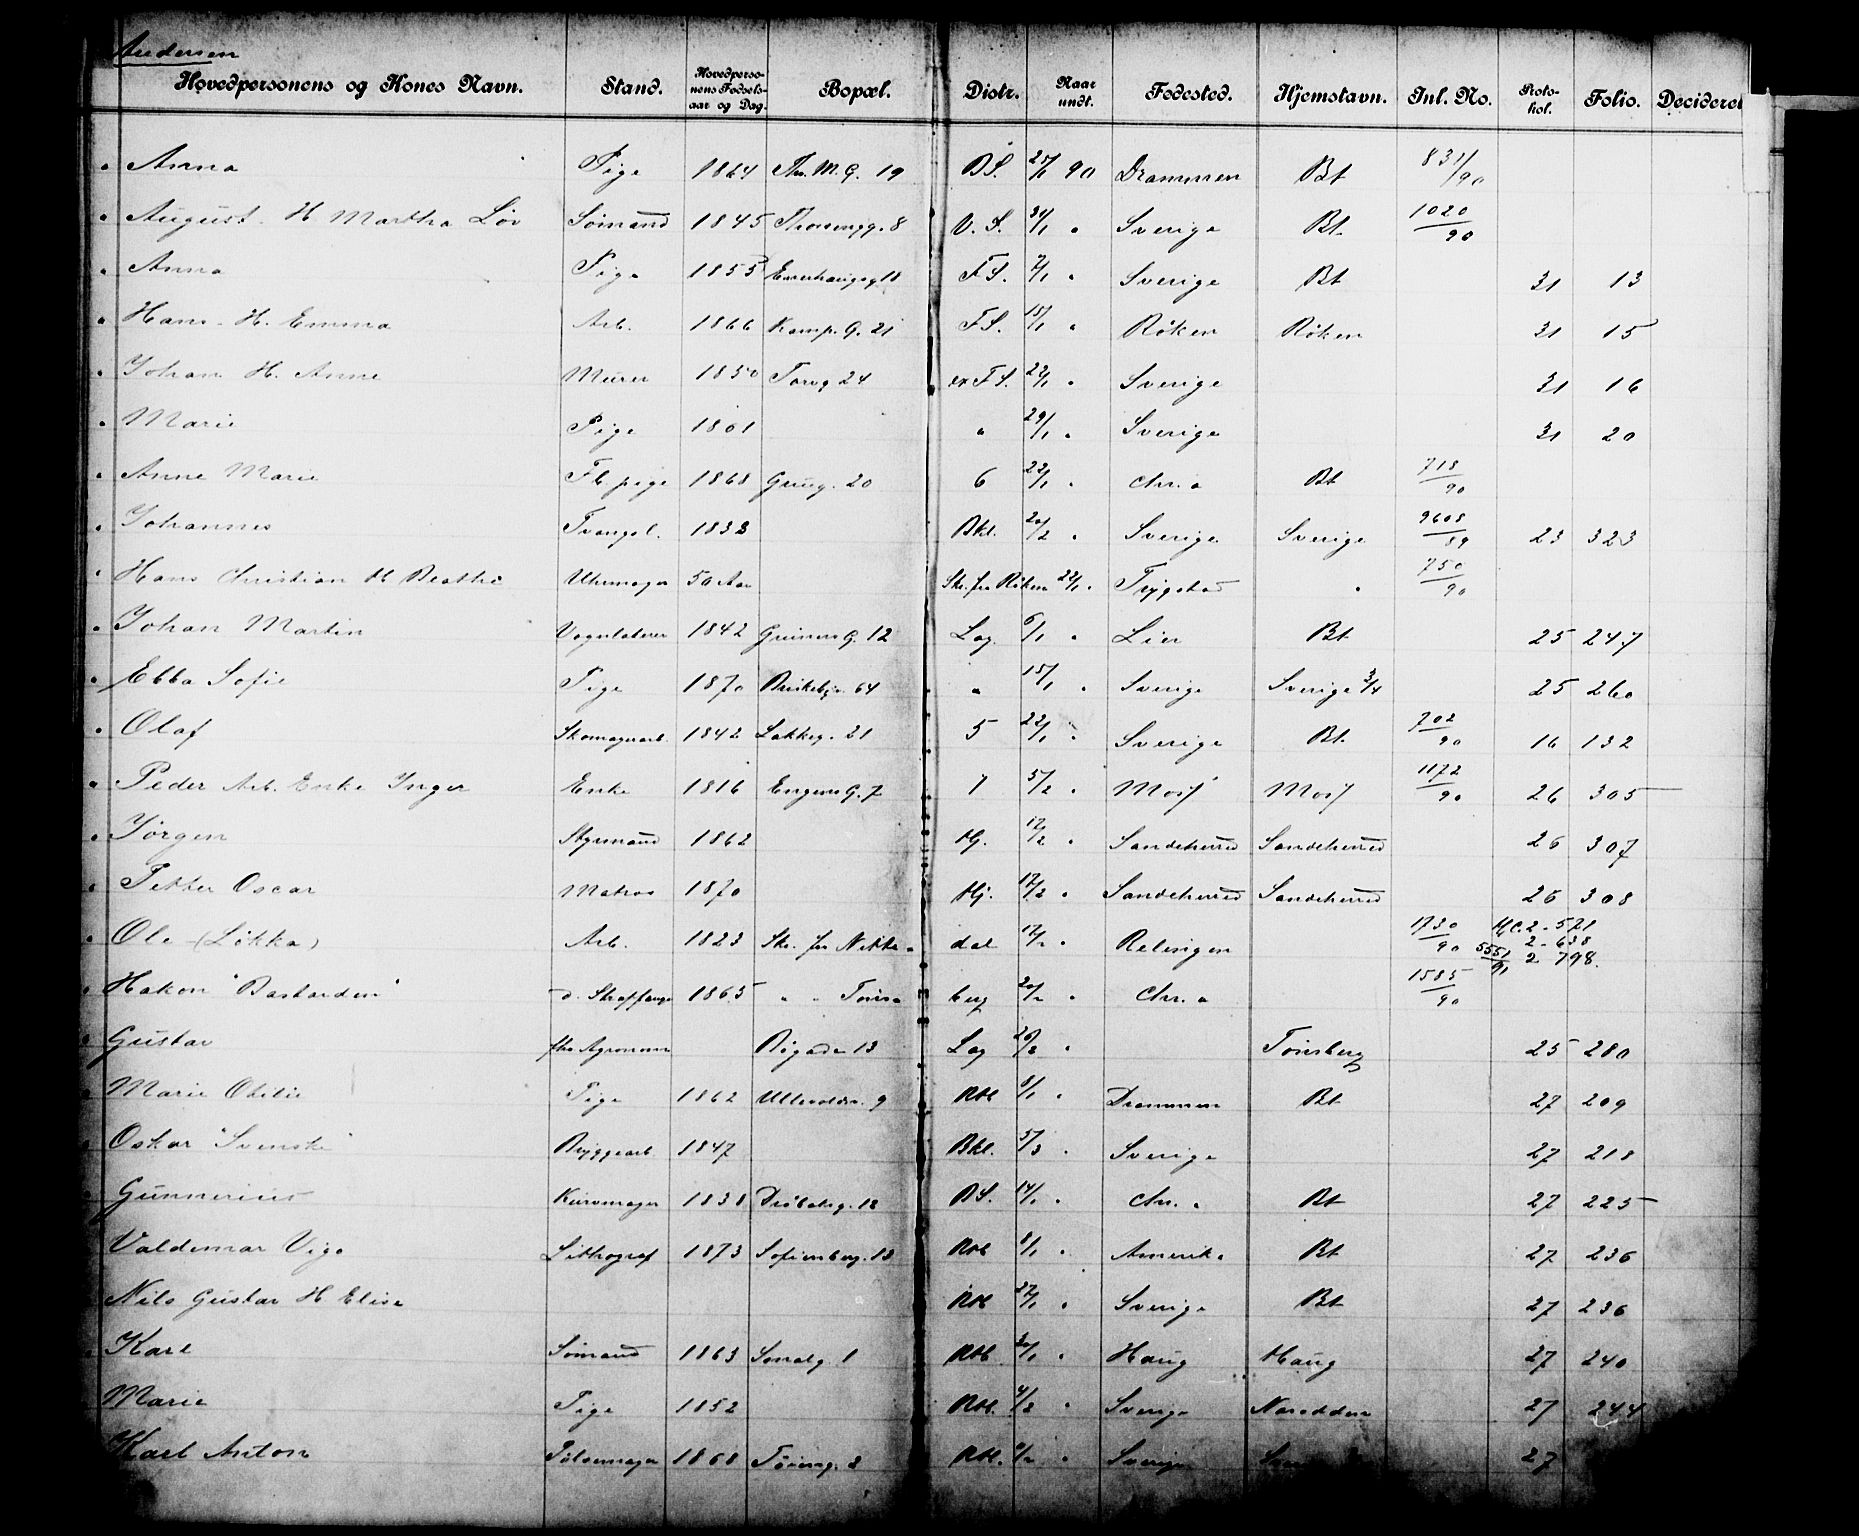 Andersen
Hovedpersonens og Kones Navn. Stand. Hovedpersonens Fødselsaar og Dag. Bopæl. Distr. Naar undt. Fødested. Hjemstavn. Jnl. No. Protokol. Folio. Decideret
Anna Pige 1864 Th. M. G. 19 BS. 25/1 90 Drammen Bt 831/90
August. H Martha Løv Sømand 1845 Thorsengg. 8 V. S. 31/1 " Sverige Bt. 1020/90
Anna Pige 1855 Enerhaugsg 18 FS. 7/1 " Sverige Bt 31 13
Hans. H. Emma Arb. 1866 Kamp. G. 21 FS. 15/1 " Røken Røken 31 15
Johan H. Anne Murer 1850 Torvg 24 ex FS. 22/1 " Sverige 31 16
Marie Pige 1861 " 29/1 " Sverige 31 20
Anne Marie Fb pige 1868 Grung. 20 6 22/1 " Chr. a Bt 718/90
Johannes Tvangsl. 1833 Bkl. 20/2 " Sverige Sverige 9608/89 23 323
Hans Christian H Beathe Uhrmager 50 Aar Skr. fra Røken 22/1 " Trygstad " 750/90
Johan Martin Vognlaterer 1842 Grüners G. 12 Lag. 6/1 " Lier Bt 25 247
Ebba Sofie Pige 1870 Briskebyv. 64 " 15/1 " Sverige Sverige 3/4 25 260
Olaf Skomagerarb. 1842 Lakkeg. 21 5 22/1 " Sverige Bt. 702/90 16 132
Peder Arb. Enke Inger Enke 1816 Engens G. 7 7 5/2 " Moss Moss 1172/90 26 305
Jørgen Styrmand 1862 Hj. 12/2 " Sandeherred Sandeherred 26 307
Petter Oscar Matros 1870 Hj. 12/2 " Sandeherred Sandeherred 26 308
Ole (Løkka) Arb. 1823 Skr. fra Nittedal 12/2 " Relingen 1730/90 Hc. 2 - 571
2 - 638
5551/91 2 798.
Hakon "Bastarden" d. Straffange 1865 " " Tønsberg 20/2 " Chr. a 1585/90
Gustav fhv Agronom Rigade 13 Lag 26/2 " Tønsberg 25 280
Marie Otilie Pige 1862 Ullevoldsv. 9 Rbl 8/1 " Drammen Bt 27 209
Oskar "Svenske" Bryggearb 1847 Bkl. 5/3 " Sverige 27 218
Gunnerius Kurvmager 1838 Drøbaksg. 12 BS. 14/1 " Chr. a Bt 27 225
Valdemar Vigo Lithograf 1873 Sofienberg. 13 Rbl 8/1 " Amerika Bt 27 236
Nils Gustav H Elise Rbl 22/1 " Sverige Bt 27 236
Karl Sømand 1863 Smalg. 1 Rbl. 30/1 " Haug Haug 27 240
Marie Pige 1852 Rbl. 4/2 " Sverige 27 244
Karl Anton Pølsemager 1868 Tøieng. 8 Rbl. /2 " Sverige 27